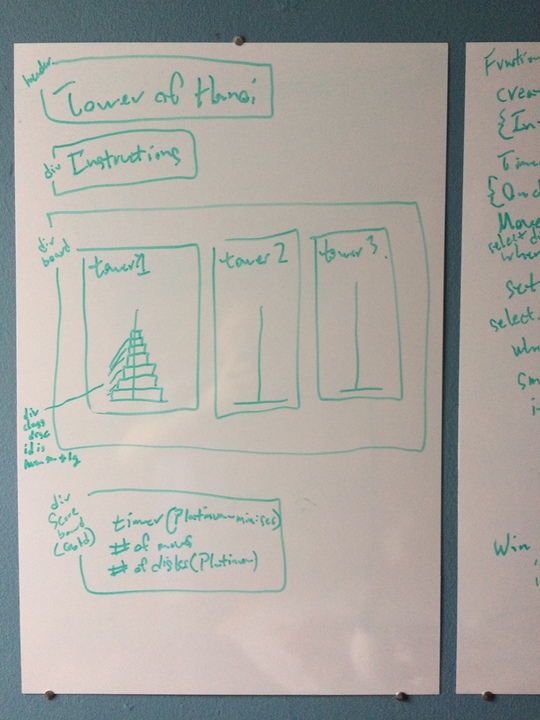 header
Tower of Hanoi
div
Instructions
div
board
tower1
tower 2
tower 3.
div
class
disc
id is
div
Score
board
(Gold)
timer (Platinum
# of moves
# of disks (Platinum)
Function
crea
{In
Time
Move
select di
when
set
select
Win